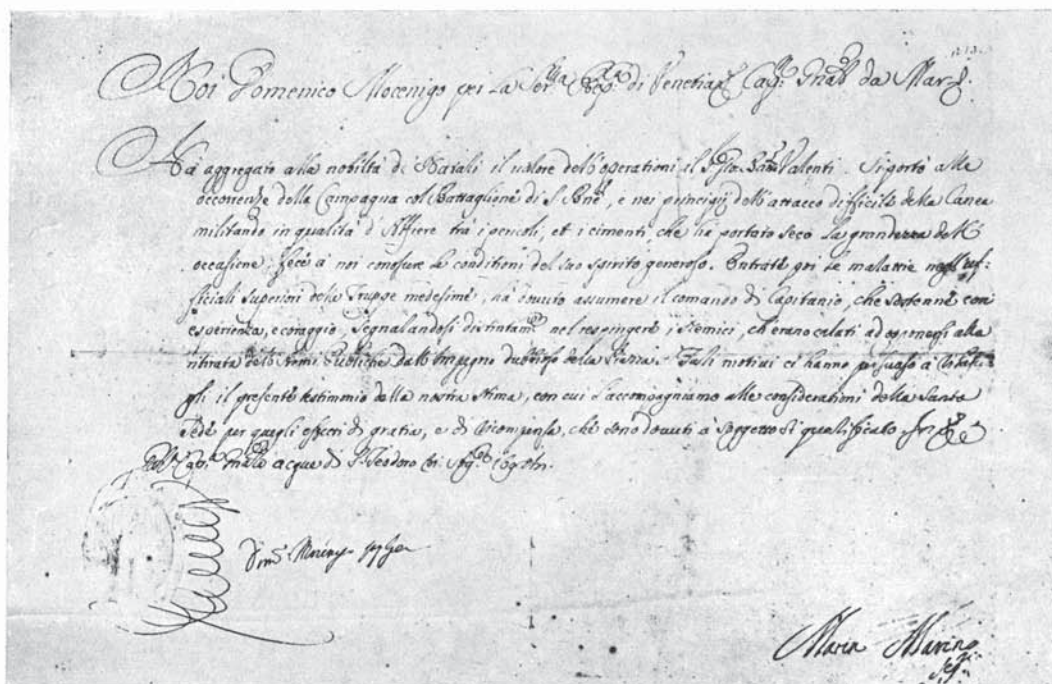 Noi Domenico Mocenigo per la Ser.ma Rep.ca di Venetia &c. Cap.n Gnãl da Mar &c.
Ha aggregato alla nobiltà di Natali il valore dell'operationi il Valenti. Si portò alle
occorrenze della Campagna col Battaglione di S. , e nei principij dell'attacco difficile della Canea
militando in qualità d'Alfiere trà i pericoli, et i cimenti, che hà portato seco la grandezza dell'
occasione, fece à noi conoscere le conditioni del suo spirito generoso. Entrate poi le malattie negl'uf=
ficiali superiori delle Truppe medesime, hà dovuto assumere il comando di Capitanio, che sostenne con
esperienza, e coraggio, segnalandosi distintam.te nel respingere i Nemici, ch'erano calati ad opponersi alla
ritirata dell'Armi Publiche dall'Impegno dubbioso della Piazza. Tali motivi ci hanno persuaso à
gli il presente testimonio della nostra stima, con cui l'accompagniamo alle considerationi della Santa
Sede per quegli effetti di gratia, e di ricompensa, che sono dovuti à soggetto sì qualificato
acque di S. Teodoro
Marin
Seg.